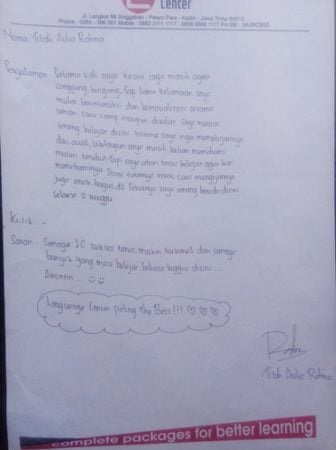 Center
Jl. Langkat 88 Singgahan - Pelem Pare - Kediri - Jawa Timur 64213
Nama: Titah Aulia Rahma
Pengalaman : Pertama kali saya kesini saya masih agak
canggung, bingung, tapi lama kelamaan saya
mulai berinteraksi dan bersosialisasi sesama
teman satu camp maupun diluar. Saya
senang belajar disini karena saya ingin mempelajarinya
dari awal, walaupun saya masih belum memahami
materi tersebut. Tapi saya akan terus belajar agar bisa
memahaminya. Disini tutornya enak, cara mengajarnya
juga enak, bagus, dll. Pokoknya saya senang berada disini
selama 2 minggu.
Kritik : -
Saran : Semoga LC sukses terus, makin terkenal dan semoga
banyak yang mau belajar bahasa Inggris disini...
Aminnn...
Languange Center paling the Best!!! ♡ ♡ ♡
Titah Aulia Rahma
complete packages for better learning